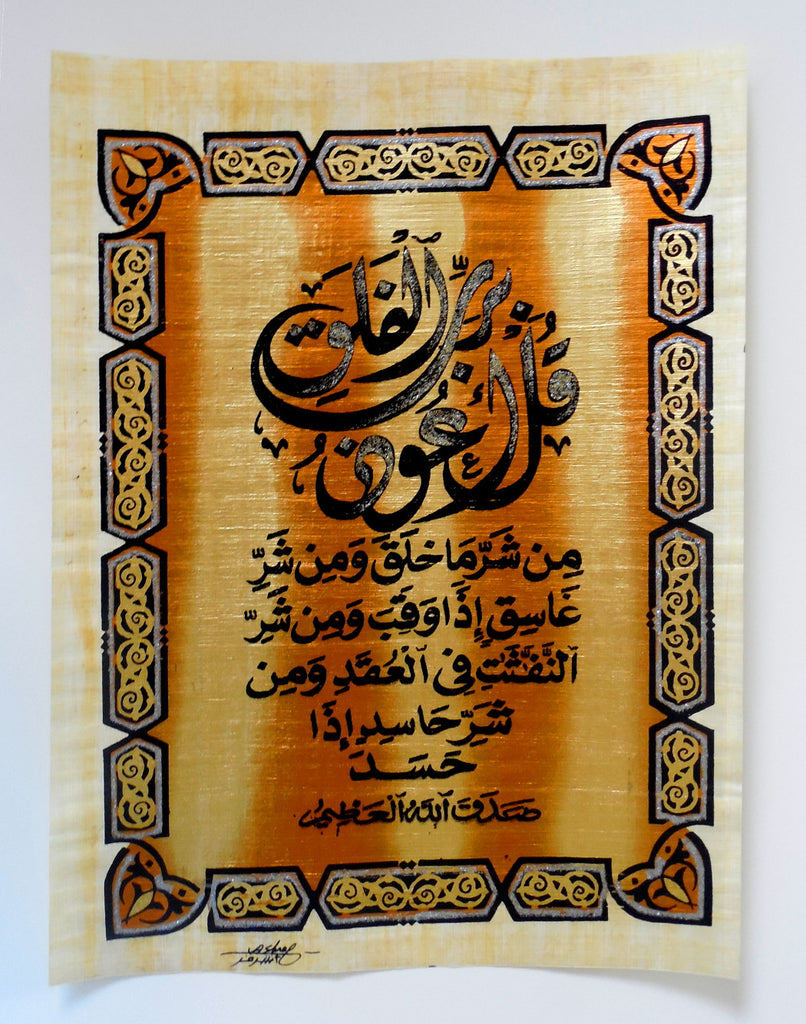 قُلْ أَعُوذُ بِرَبِّ ٱلْفَلَقِ
مِن شَرِّ مَا خَلَقَ وَمِن شَرِّ
غَاسِقٍ إِذَا وَقَبَ وَمِن شَرِّ
ٱلنَّفَّٰثَٰتِ فِى ٱلْعُقَدِ وَمِن
شَرِّ حَاسِدٍ إِذَا
حَسَدَ
صَدَقَ ٱللَّهُ ٱلْعَظِيمُ